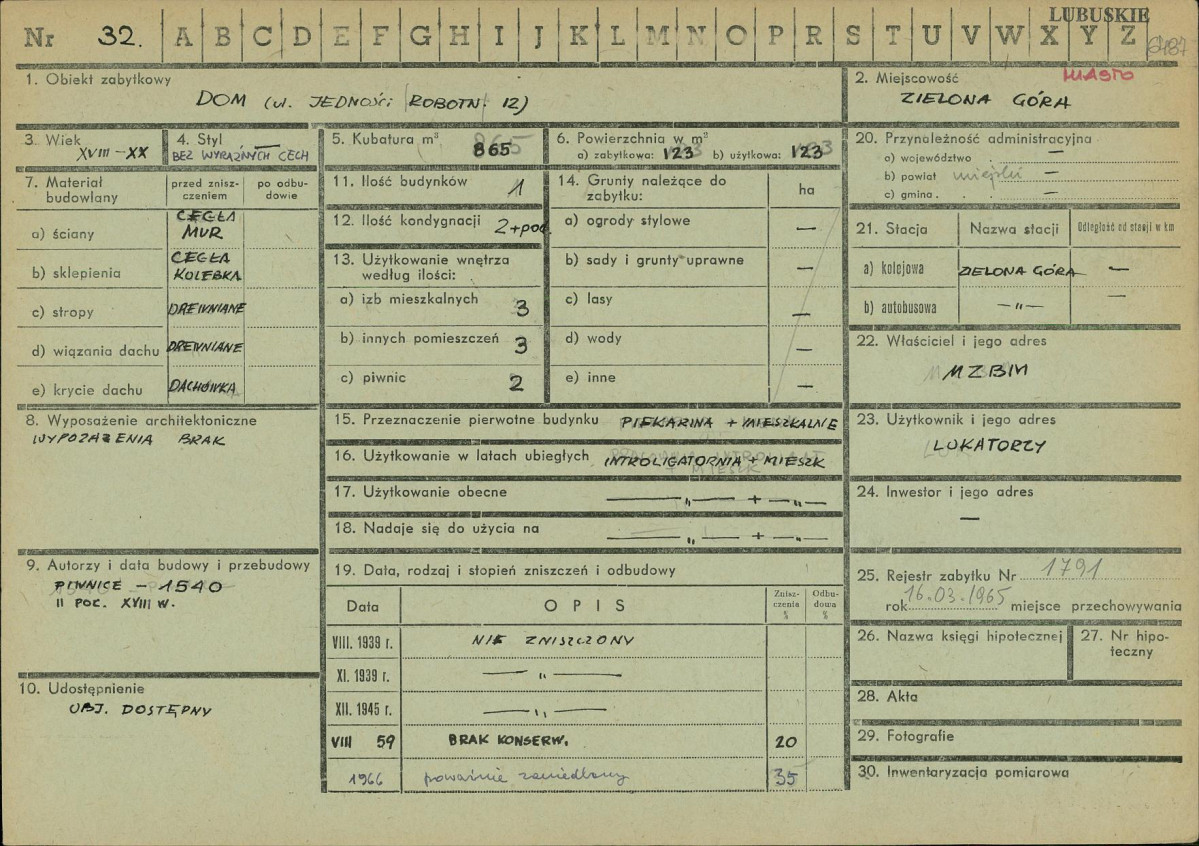 LUBUSKIE
Nr 32. A B C D E F G H I J K L M N O P R S T U V W X Y Z
1. Obiekt zabytkowy
DOM (ul. JEDNOŚCI ROBOTN. 12)
2. Miejscowość
MIASTO
ZIELONA GÓRA
3. Wiek
XVIII – XX
4. Styl
BEZ WYRAŹNYCH CECH
5. Kubatura m³
865
6. Powierzchnia w m²
a) zabytkowa: 123 b) użytkowa: 123
20. Przynależność administracyjna
a) województwo —
b) powiat miejski —
c) gmina —
7. Materiał budowlany
przed zniszczeniem
po odbudowie
a) ściany CEGŁA MUR
b) sklepienia CEGŁA KOLEBKA
c) stropy DREWNIANE
d) wiązania dachu DREWNIANE
e) krycie dachu DACHÓWKA
11. Ilość budynków 1
12. Ilość kondygnacji 2+pod.
13. Użytkowanie wnętrza
według ilości:
a) izb mieszkalnych 3
b) innych pomieszczeń 3
c) piwnic 2
14. Grunty należące do
zabytku:
ha
a) ogrody stylowe —
b) sady i grunty uprawne —
c) lasy —
d) wody —
e) inne —
21. Stacja
Nazwa stacji
Odległość od stacji w km
a) kolejowa ZIELONA GÓRA —
b) autobusowa —"— —
22. Właściciel i jego adres
MZBM
8. Wyposażenie architektoniczne
WYPOZAŻENIA BRAK
15. Przeznaczenie pierwotne budynku PIEKARINA + MIESZKALNIE
16. Użytkowanie w latach ubiegłych INTROLIGATORNIA + MIESZK
17. Użytkowanie obecne —"— + —"—
18. Nadaje się do użycia na —"— + —"—
23. Użytkownik i jego adres
LOKATORZY
24. Inwestor i jego adres
—
9. Autorzy i data budowy i przebudowy
PIWNICE – 1540
II POŁ. XVIII W.
19. Data, rodzaj i stopień zniszczeń i odbudowy
Data
OPIS
Zniszczenia %
Odbudowa %
VIII. 1939 r. NIE ZNISZCZONY
XI. 1939 r. —"—
XII. 1945 r. —"—
VIII 59 BRAK KONSERW. 20
1966 poważnie zaniedbany 35
25. Rejestr zabytku Nr 1791
rok 16.03.1965 miejsce przechowywania
26. Nazwa księgi hipotecznej
27. Nr hipoteczny
10. Udostępnienie
OBJ. DOSTĘPNY
28. Akta
29. Fotografie
30. Inwentaryzacja pomiarowa